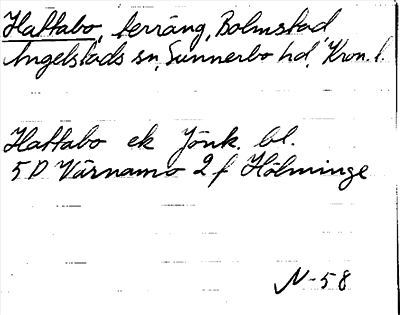 Hattabo, terräng, Bolmstad
Angelstads sn, Sunnerbo hd, Kron. l.
Hattabo ek Jönk. bl.
5 D Värnamo 2 f Hölminge
N-58